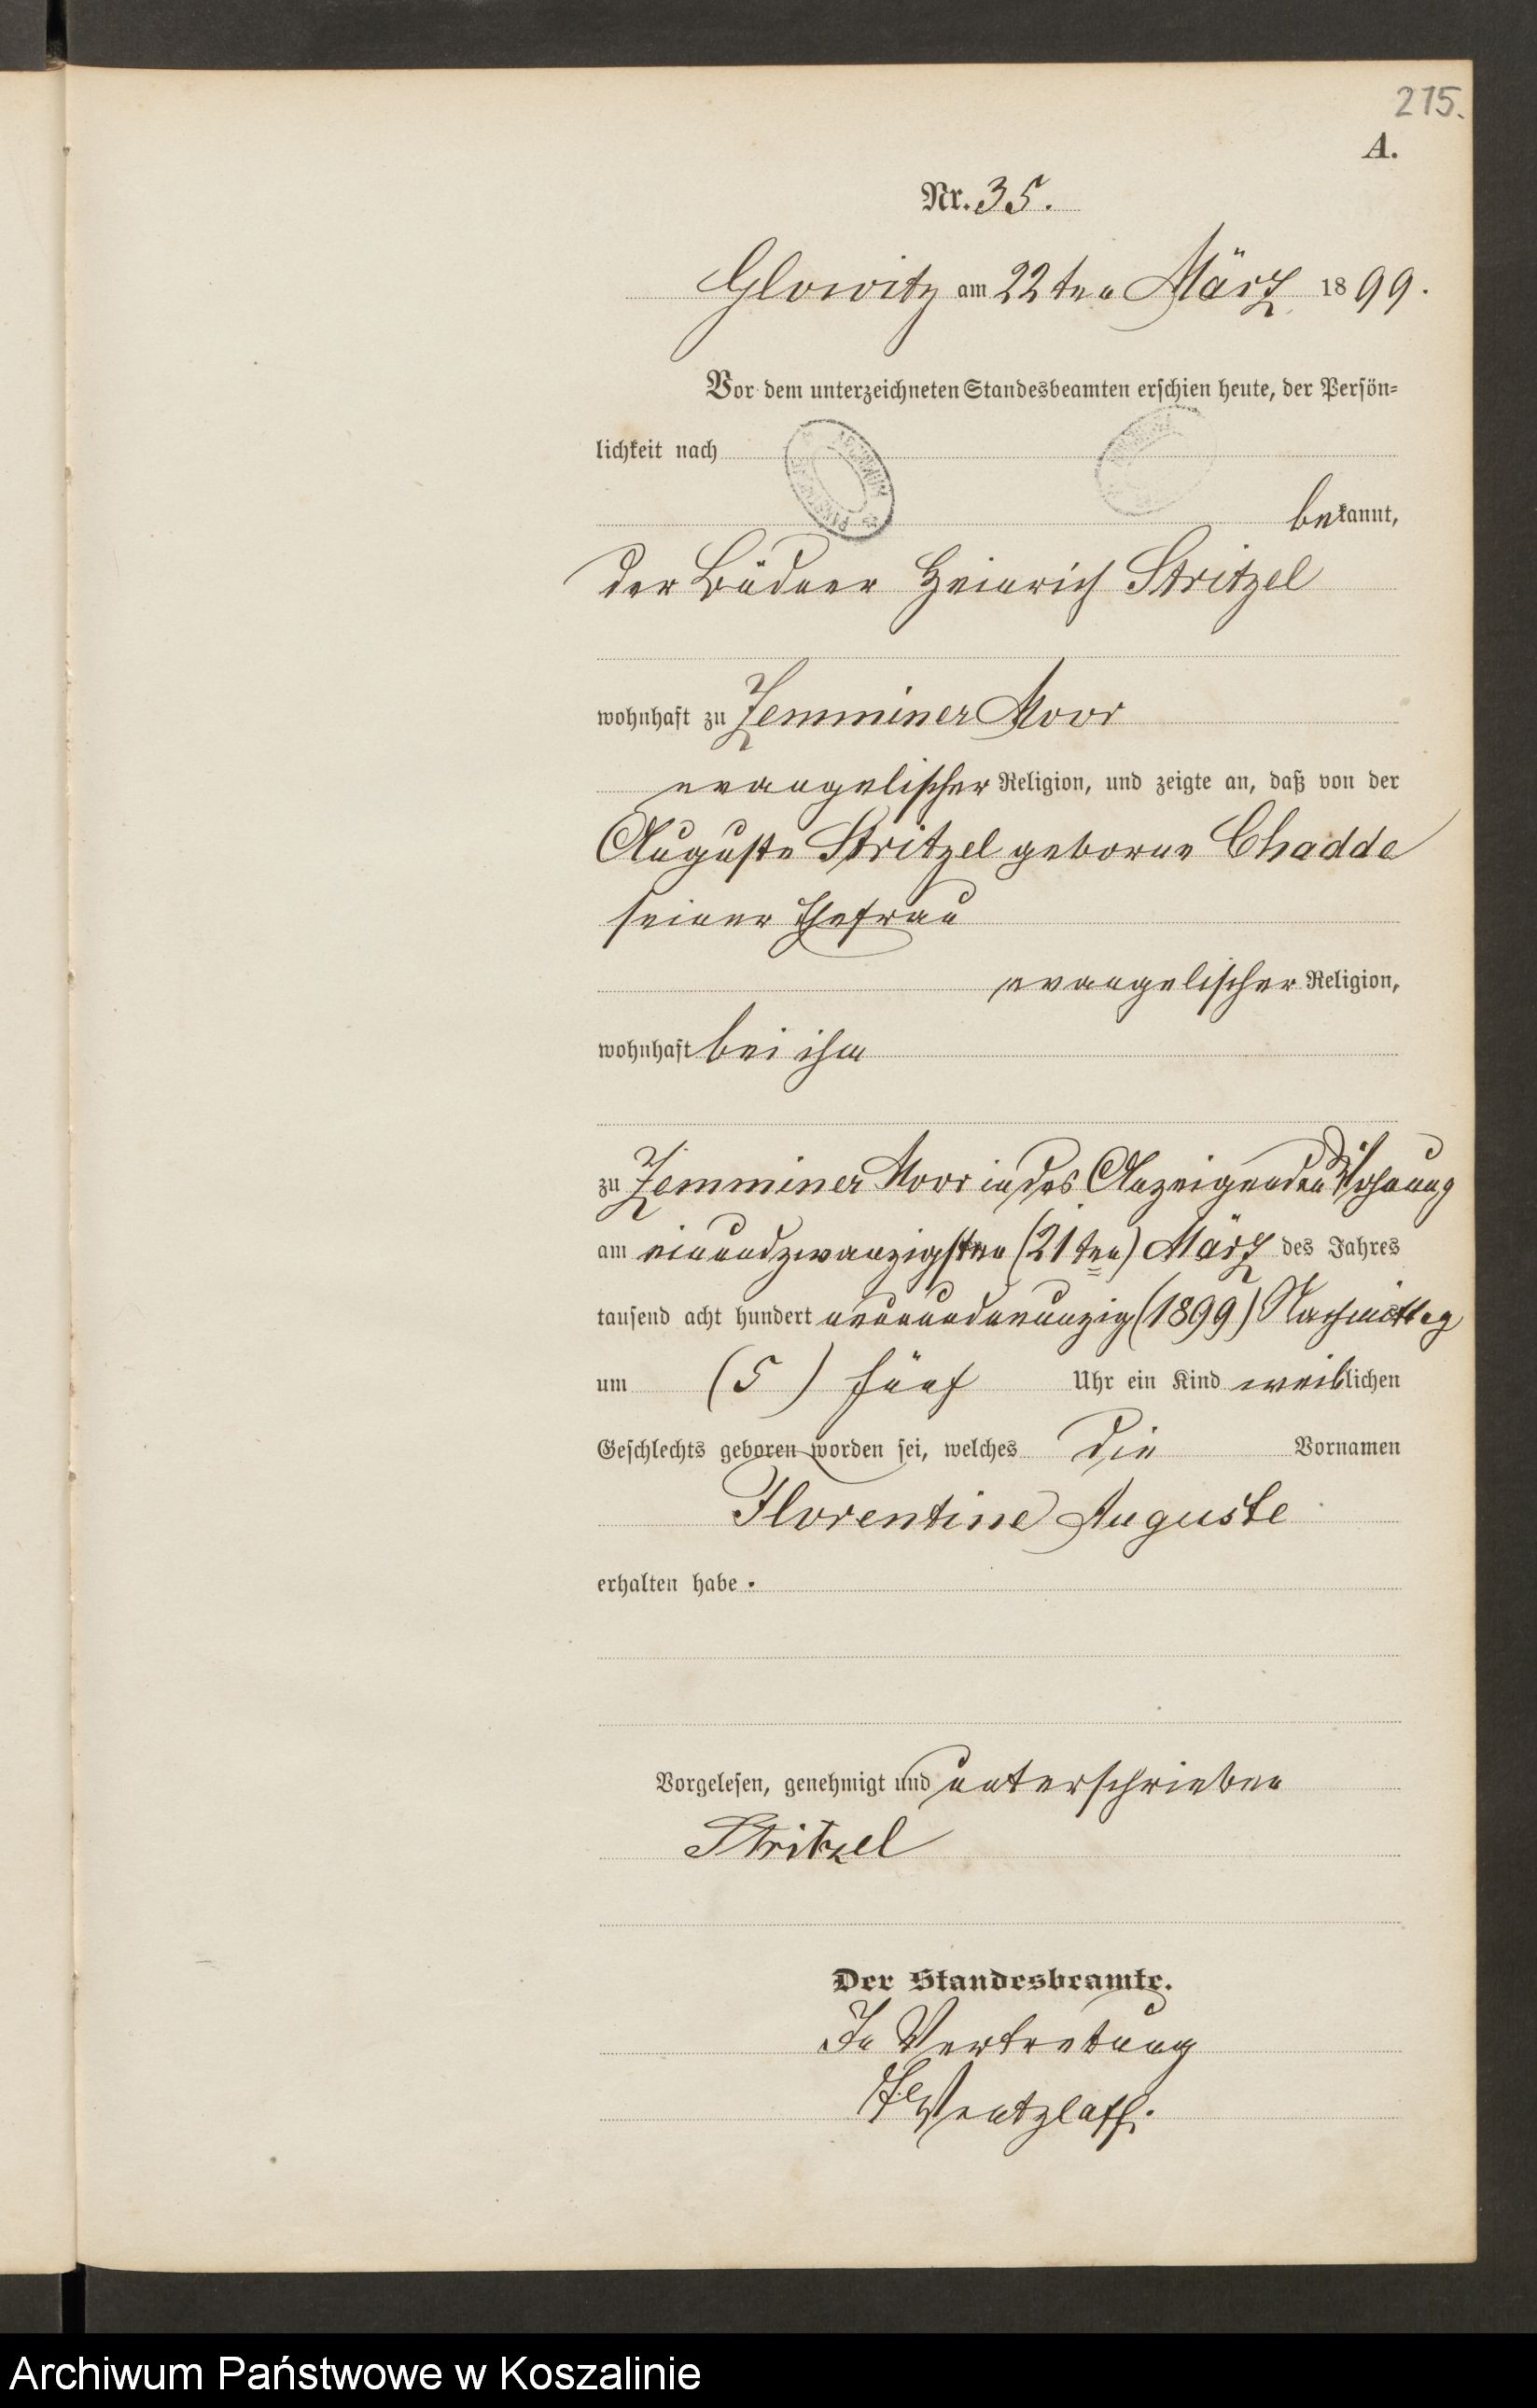 215.
A.
Nr. 35.
Glowitz am 22ten März 1899.
Vor dem unterzeichneten Standesbeamten erschien heute, der Persön-
lichkeit nach
bekannt,
der Büdner Heinrich Stritzel
wohnhaft zu Zemminer Moor
evangelischer Religion, und zeigte an, daß von der
Auguste Stritzel geborne Chadde
seiner Ehefrau
evangelischer Religion,
wohnhaft bei ihm
zu Zemminer Moor in des Anzeigenden Wohnung
am einundzwanzigsten (21ten) März des Jahres
tausend acht hundert neunundneunzig (1899) Nachmittag
um (5) fünf Uhr ein Kind weiblichen
Geschlechts geboren worden sei, welches die Vornamen
Florentine Auguste
erhalten habe.
Vorgelesen, genehmigt und unterschrieben
Stritzel
Der Standesbeamte.
In Vertretung
Wentzlaff.
Archiwum Państwowe w Koszalinie